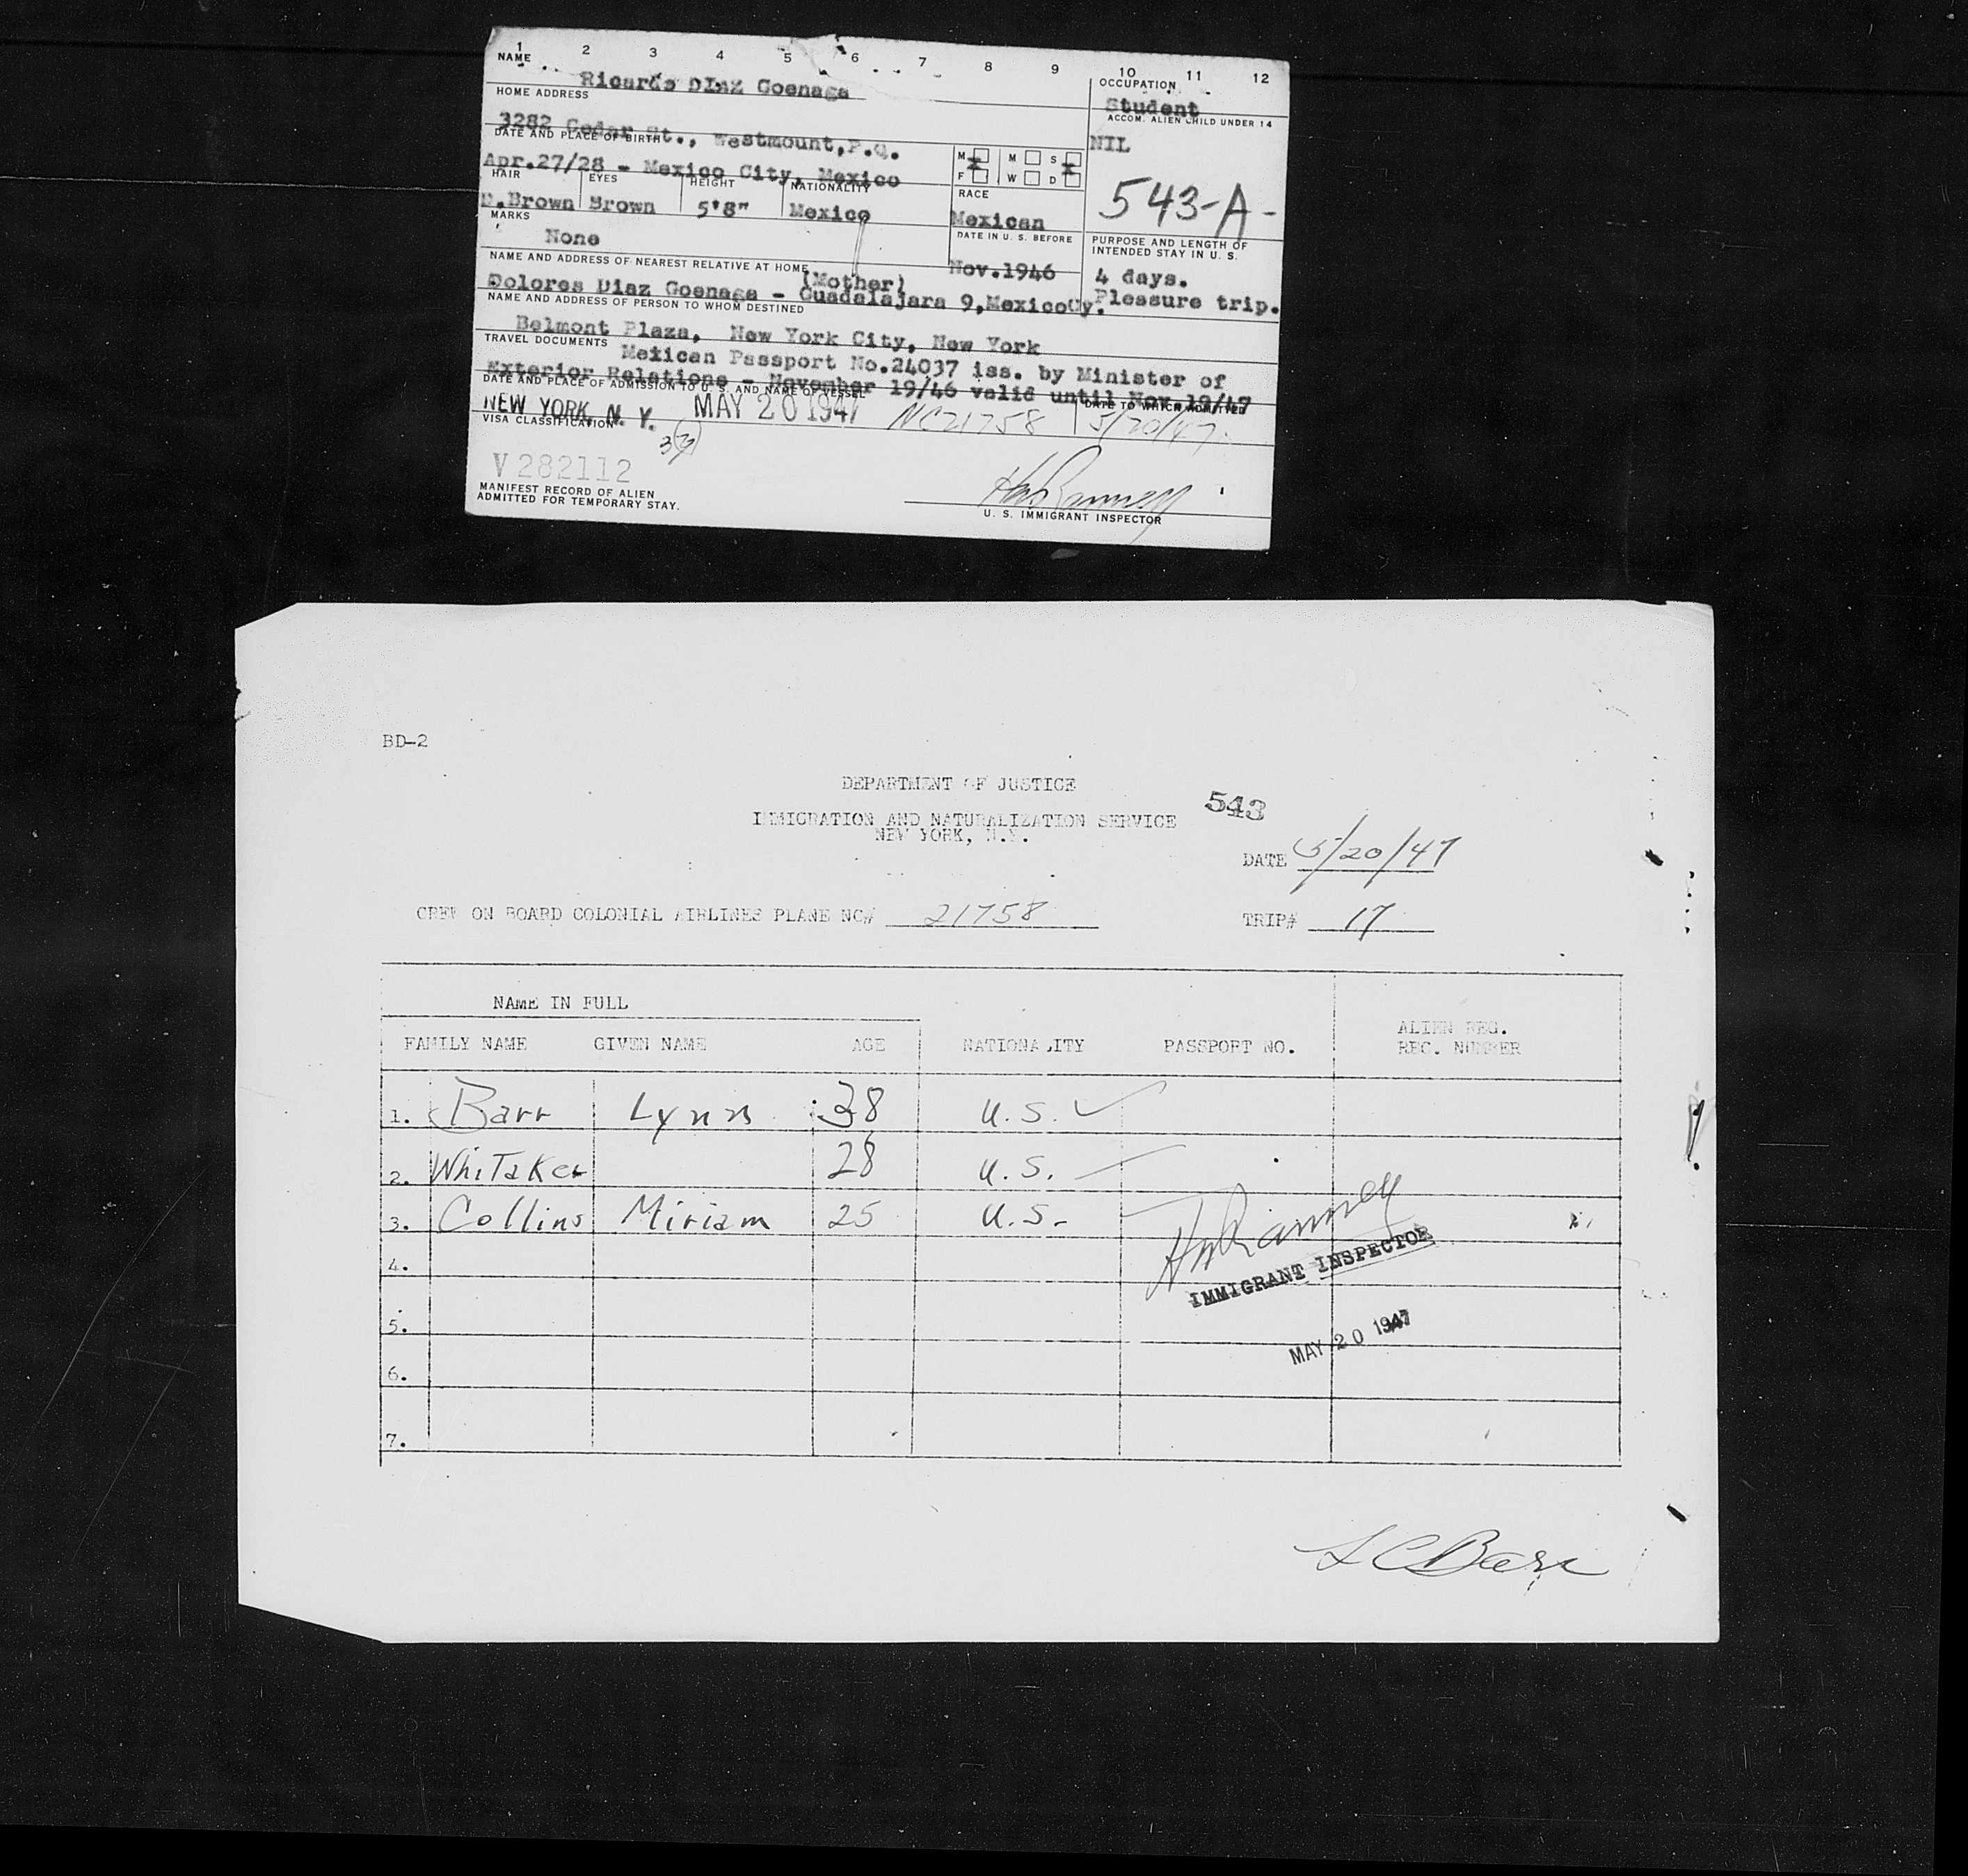 1 2 3 4 5 6 7 8 9 10 11 12
NAME
Ricardo DIAZ Goenaga
OCCUPATION
Student
HOME ADDRESS
3282 Cedar St., Westmount,P.Q.
ACCOM. ALIEN CHILD UNDER 14
NIL
DATE AND PLACE OF BIRTH
Apr.27/28 - Mexico City, Mexico
M X M S X
F W D
HAIR EYES HEIGHT NATIONALITY RACE
D.Brown Brown 5'8" Mexico Mexican
543-A-
MARKS
None
DATE IN U. S. BEFORE
Nov.1946
PURPOSE AND LENGTH OF
INTENDED STAY IN U. S.
4 days.
Pleasure trip.
NAME AND ADDRESS OF NEAREST RELATIVE AT HOME
(Mother)
Dolores Diaz Goenaga - Guadalajara 9,MexicoCy.
NAME AND ADDRESS OF PERSON TO WHOM DESTINED
Belmont Plaza, New York City, New York
TRAVEL DOCUMENTS
Mexican Passport No.24037 iss. by Minister of
Exterior Relations - November 19/46 valid until Nov.19/47
DATE AND PLACE OF ADMISSION TO U. S. AND NAME OF VESSEL
DATE TO WHICH ADMITTED
NEW YORK, N. Y. MAY 20 1947 NC21758 5/20/47.
VISA CLASSIFICATION
3(2)
V 282112
MANIFEST RECORD OF ALIEN
ADMITTED FOR TEMPORARY STAY.
U. S. IMMIGRANT INSPECTOR
BD-2
DEPARTMENT OF JUSTICE
543
IMMIGRATION AND NATURALIZATION SERVICE
NEW YORK, N.Y.
DATE 5/20/47
CREW ON BOARD COLONIAL AIRLINES PLANE NC# 21758
TRIP# 17
NAME IN FULL
FAMILY NAME GIVEN NAME AGE NATIONALITY PASSPORT NO. ALIEN REG. REC. NUMBER
1. Barr Lynn 38 U.S.
2. Whitaker 28 U.S.
3. Collins Miriam 25 U.S.
4.
IMMIGRANT INSPECTOR
5.
MAY 20 1947
6.
7.
L C Barr